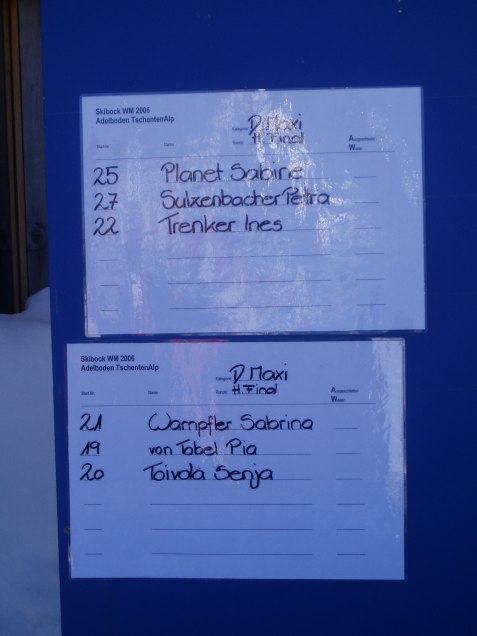 Skibock WM 2006
Adelboden TschentenAlp
Kategorie: D Maxi
Runde: H. Final
Ausgeschieden
Start Nr. Name Weiter
25 Planet Sabine
27 Sulzenbacher Petra
22 Trenker Ines
Skibock WM 2006
Adelboden TschentenAlp
Kategorie: D Maxi
Runde: H. Final
Ausgeschieden
Start Nr. Name Weiter
21 Wampfler Sabrina
19 von Tobel Pia
20 Toivola Senja